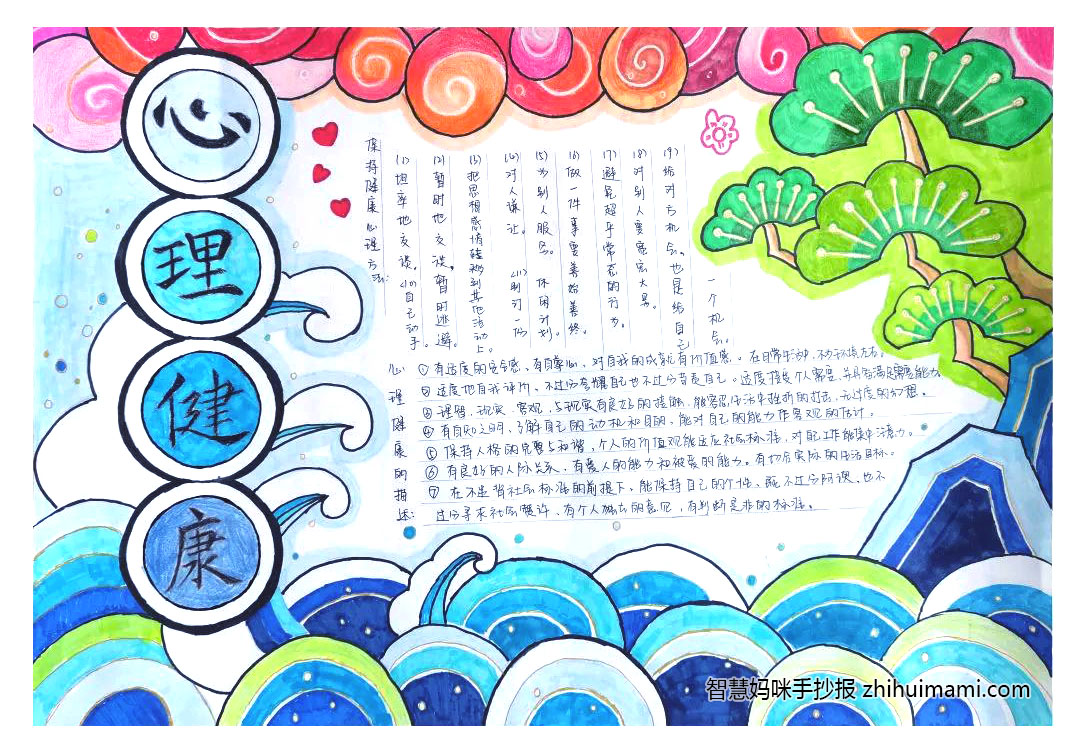 心
理
健
康
保持健康心理方法:
(1) 坦率地交谈。
(2) 暂时地交谈,暂时逃避。
(3) 把思想感情转移到其他活动上。
(4) 对人谦让。
(5) 为别人服务。
(6) 做一件事要善始善终。
(7) 避免超乎常态的行为。
(8) 对别人要宽宏大量。
(9) 给对方机会。也是给自己一个机会。
(10) 自己动手。
(11) 制订一份休闲计划。
心理健康的描述:
① 有适度的安全感、有自尊心、对自我的成就有价值感。在日常生活中,不为环境左右。
② 适度地自我评价、不过分夸耀自己也不过分苛责自己。适度接受个人需要、并具有满足需要能力
③ 理智、现实、客观、与现实有良好的接触、能容忍生活中挫折的打击、无过度的幻想。
④ 有自知之明、了解自己的动机和目的、能对自己的能力作客观的估计。
⑤ 保持人格的完整与和谐、个人的价值观能适应社会标准、对工作能集中注意力。
⑥ 有良好的人际关系、有爱人的能力和被爱的能力。有切合实际的生活目标。
⑦ 在不违背社会标准的前提下、能保持自己的个性、既不过分阿谀、也不
过分寻求社会赞许、有个人独立的意见、有判断是非的标准。
智慧妈咪手抄报 zhihuimami.com